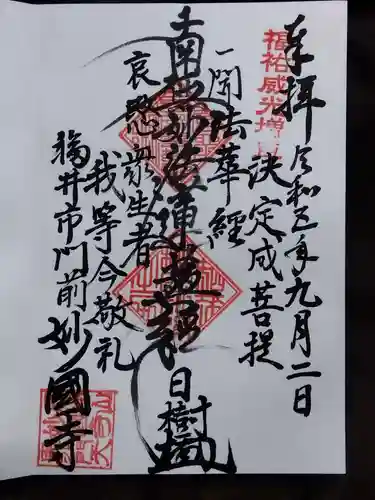 奉拝
令和五年九月二日
福祐威光増益
決定成菩提
一聞法華経
南無妙法蓮華経
日樹
哀愍衆生者
我等今敬礼
福井市門前
妙國寺